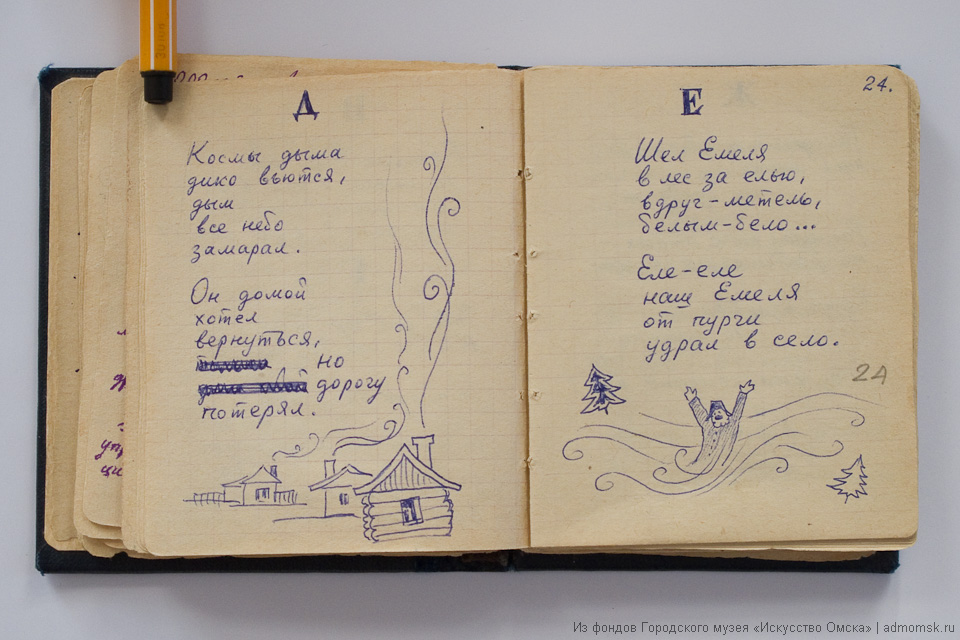 Д
Космы дыма
дико вьются,
дым
все небо
замарал.
Он домой
хотел
вернуться,
но
дорогу
потерял.
Е
24.
Шел Емеля
в лес за елью,
вдруг-метель,
белым-бело...
Еле-еле
наш Емеля
от пурги
удрал в село.
24
Из фондов Городского музея «Искусство Омска» | admomsk.ru